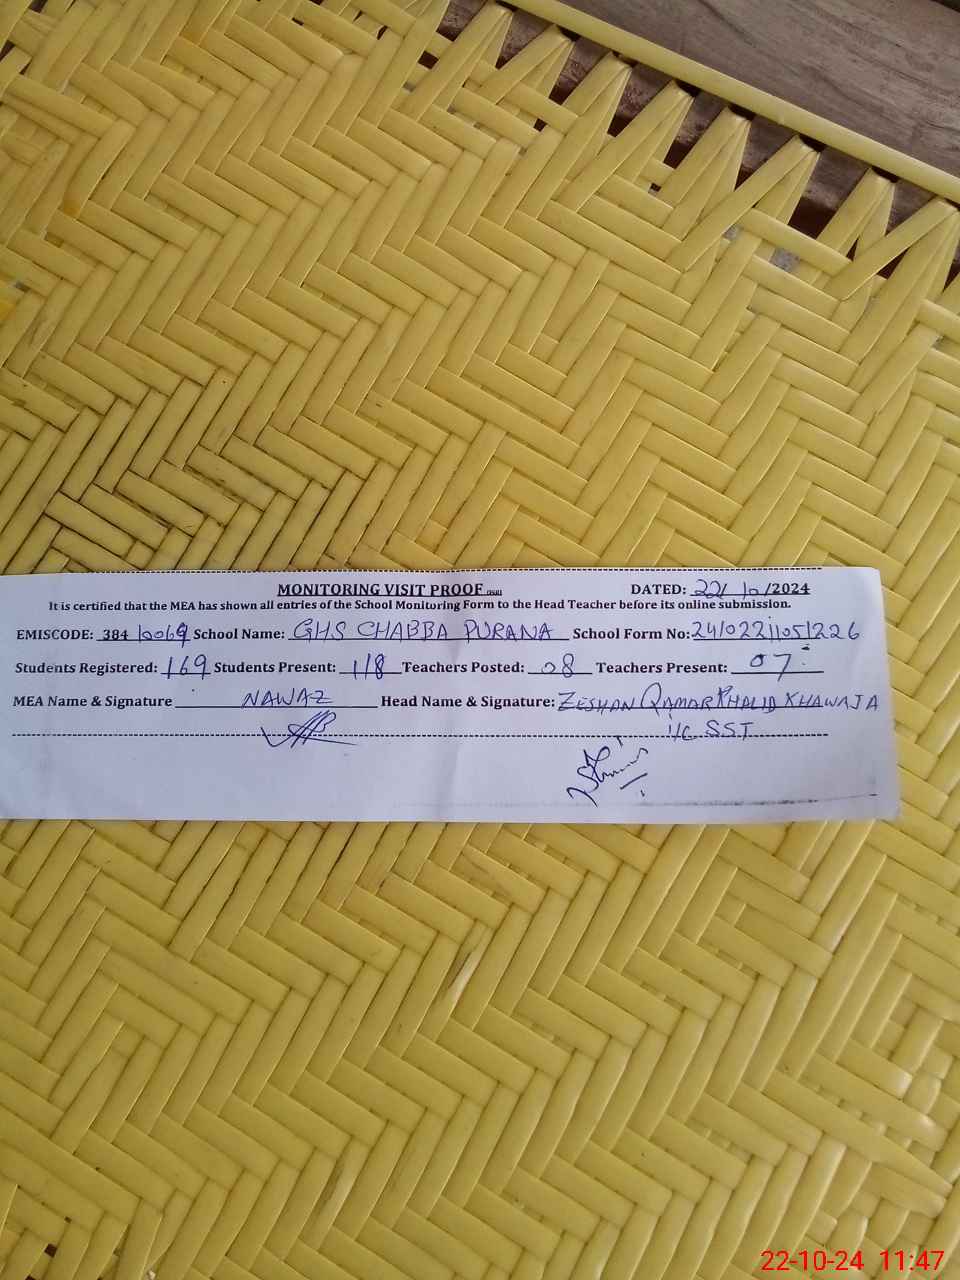 MONITORING VISIT PROOF DATED: 22/10/2024
It is certified that the MEA has shown all entries of the School Monitoring Form to the Head Teacher before its online submission.
EMISCODE: 384 10069 School Name: GHS CHABBA PURANA School Form No: 24102211051226
Students Registered: 169 Students Present: 118 Teachers Posted: 08 Teachers Present: 07
MEA Name & Signature NAWAZ Head Name & Signature: ZESHAN QAMAR KHALID KHAWAJA
I/C SST
22-10-24 11:47